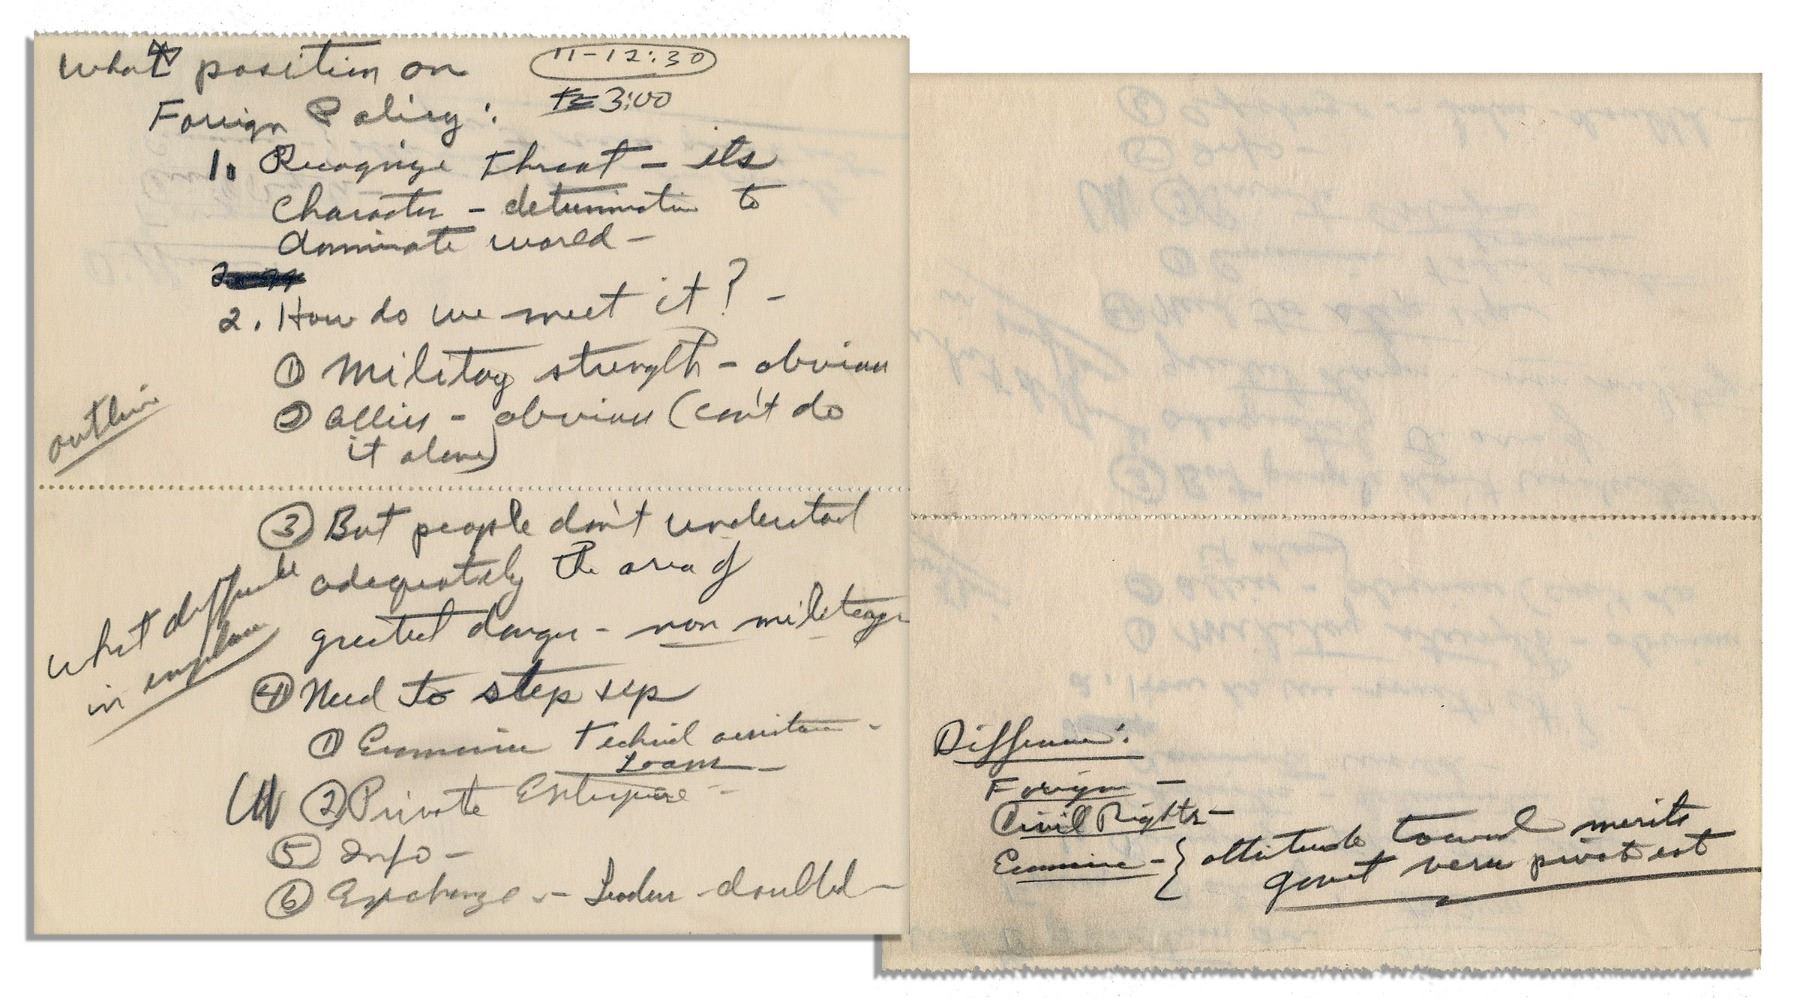 What position on
11-12:30
3:00
Foreign Policy:
1. Recognize threat - its
character - determination to
dominate world -
2. How do we meet it? -
① Military strength - obvious
② Allies - obvious (can't do
it alone)
outline
③ But people don't understand
adequately the area of
greatest danger - non military
what difference
in
④ Need to step up
① Economic technical assistance -
Loans -
② Private Enterprise -
⑤ Info -
⑥ Exchange - - Leaders doubled -
Difference:
Foreign -
Civil Rights -
Economic - { attitude toward merits
govt versus private est